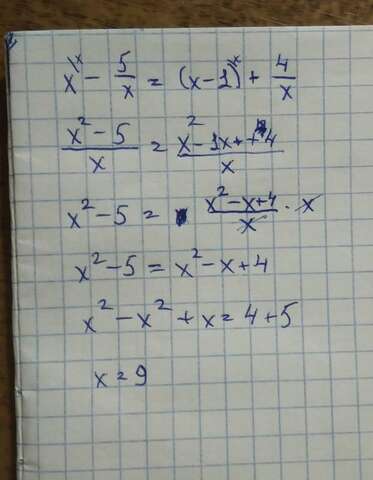 x^{\x} - 5/x = (x-1)^{\x} + 4/x
(x² - 5)/x = (x² - 1x + 4)/x
x² - 5 = (x² - x + 4)/x · x
x² - 5 = x² - x + 4
x² - x² + x = 4 + 5
x = 9